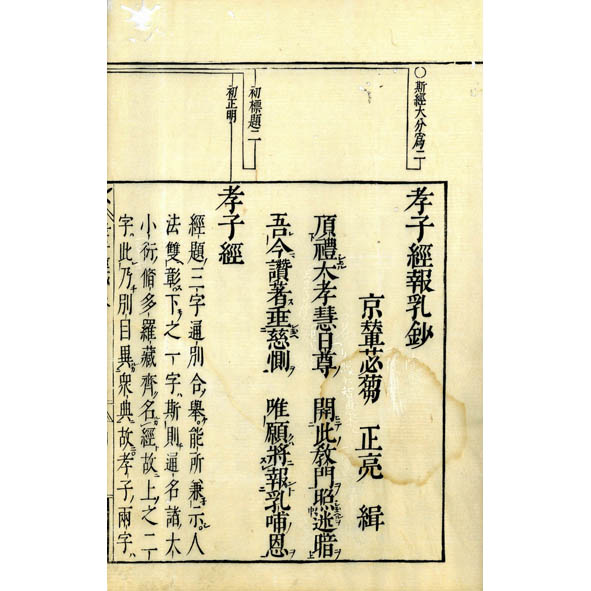 ○斯經大分爲二
初標題二
初正明
孝子經報乳鈔
京輦苾蒭　正亮　緝
頂禮大孝慧日尊　開此教門照迷暗
吾今讚著垂慈惻　唯願將報乳哺恩
孝子經
經題三字通別合擧能所兼示人
法雙彰下之一字斯則通名諸大
小衍脩多羅藏齊名經故上之二
字此乃別目異衆典故孝子兩字